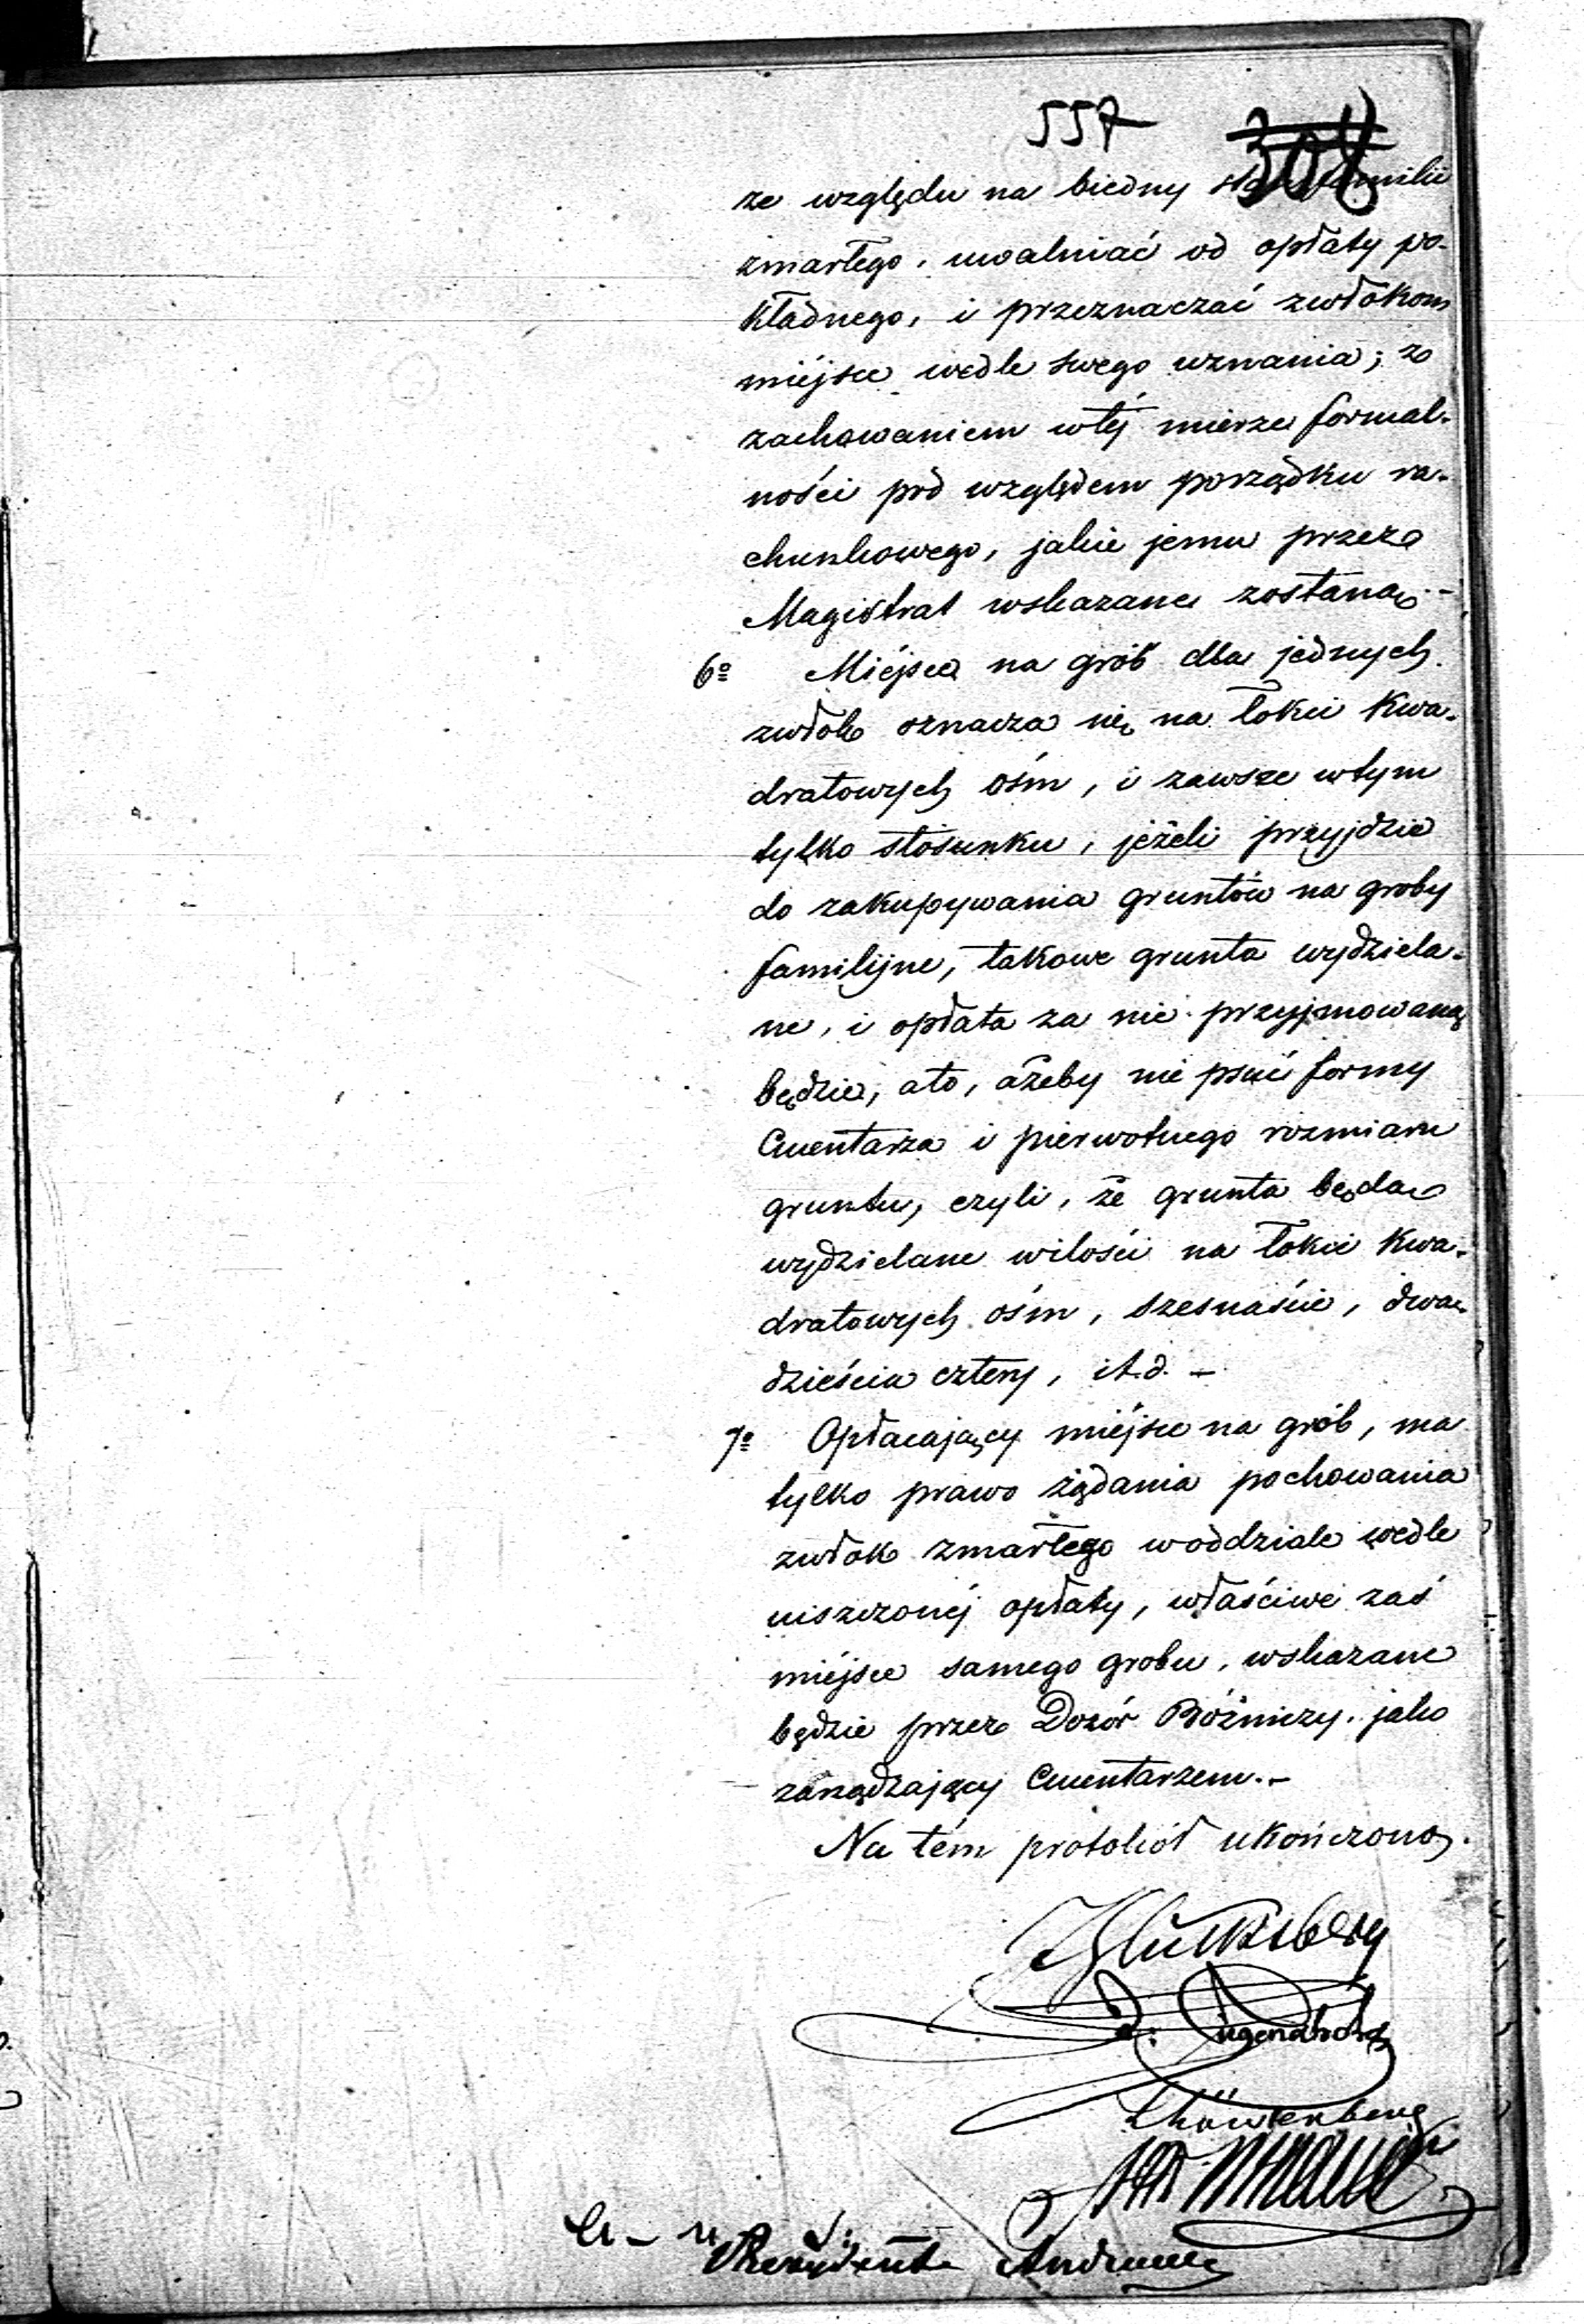 557 308
ze względu na biedny stan familii
zmarłego, uwalniać od opłaty po-
kładnego, i przeznaczać zwłokom
miéjsce wedle swego uznania; z
zachowaniem wtéj mierze formal-
ności pod względem porządku ra-
chunkowego, jakie jemu przez
Magistrat wskazane zostaną.-
6o Miéjsce na grób dla jednych
zwłok oznacza się na łokci kwa-
dratowych ośm, i zawsze wtym
tylko stósunku, jeżeli przyjdzie
do zakupywania gruntów na groby
familijne, takowe grunta wydziela-
ne, i opłata za nie przyjmowaną
będzie, ato, ażeby nie psuć formy
Cmentarza i pierwotnego rozmiaru
gruntu, czyli, że grunta będą
wydzielane wilości na łokci kwa-
dratowych ośm, szesnaście, dwa-
dzieścia cztery, it.d. -
7o Opłacający miéjsce na grób, ma
tylko prawo żądania pochowania
zwłok zmarłego woddziale wedle
uiszczonéj opłaty, właściwe zaś
miéjsce samego grobu, wskazane
będzie przez Dozór Bóżniczy, jako
zarządzający Cmentarzem.-
Na tém protokół ukończono.
JGlücksberg
Löwenberg
Prezydent Andrault